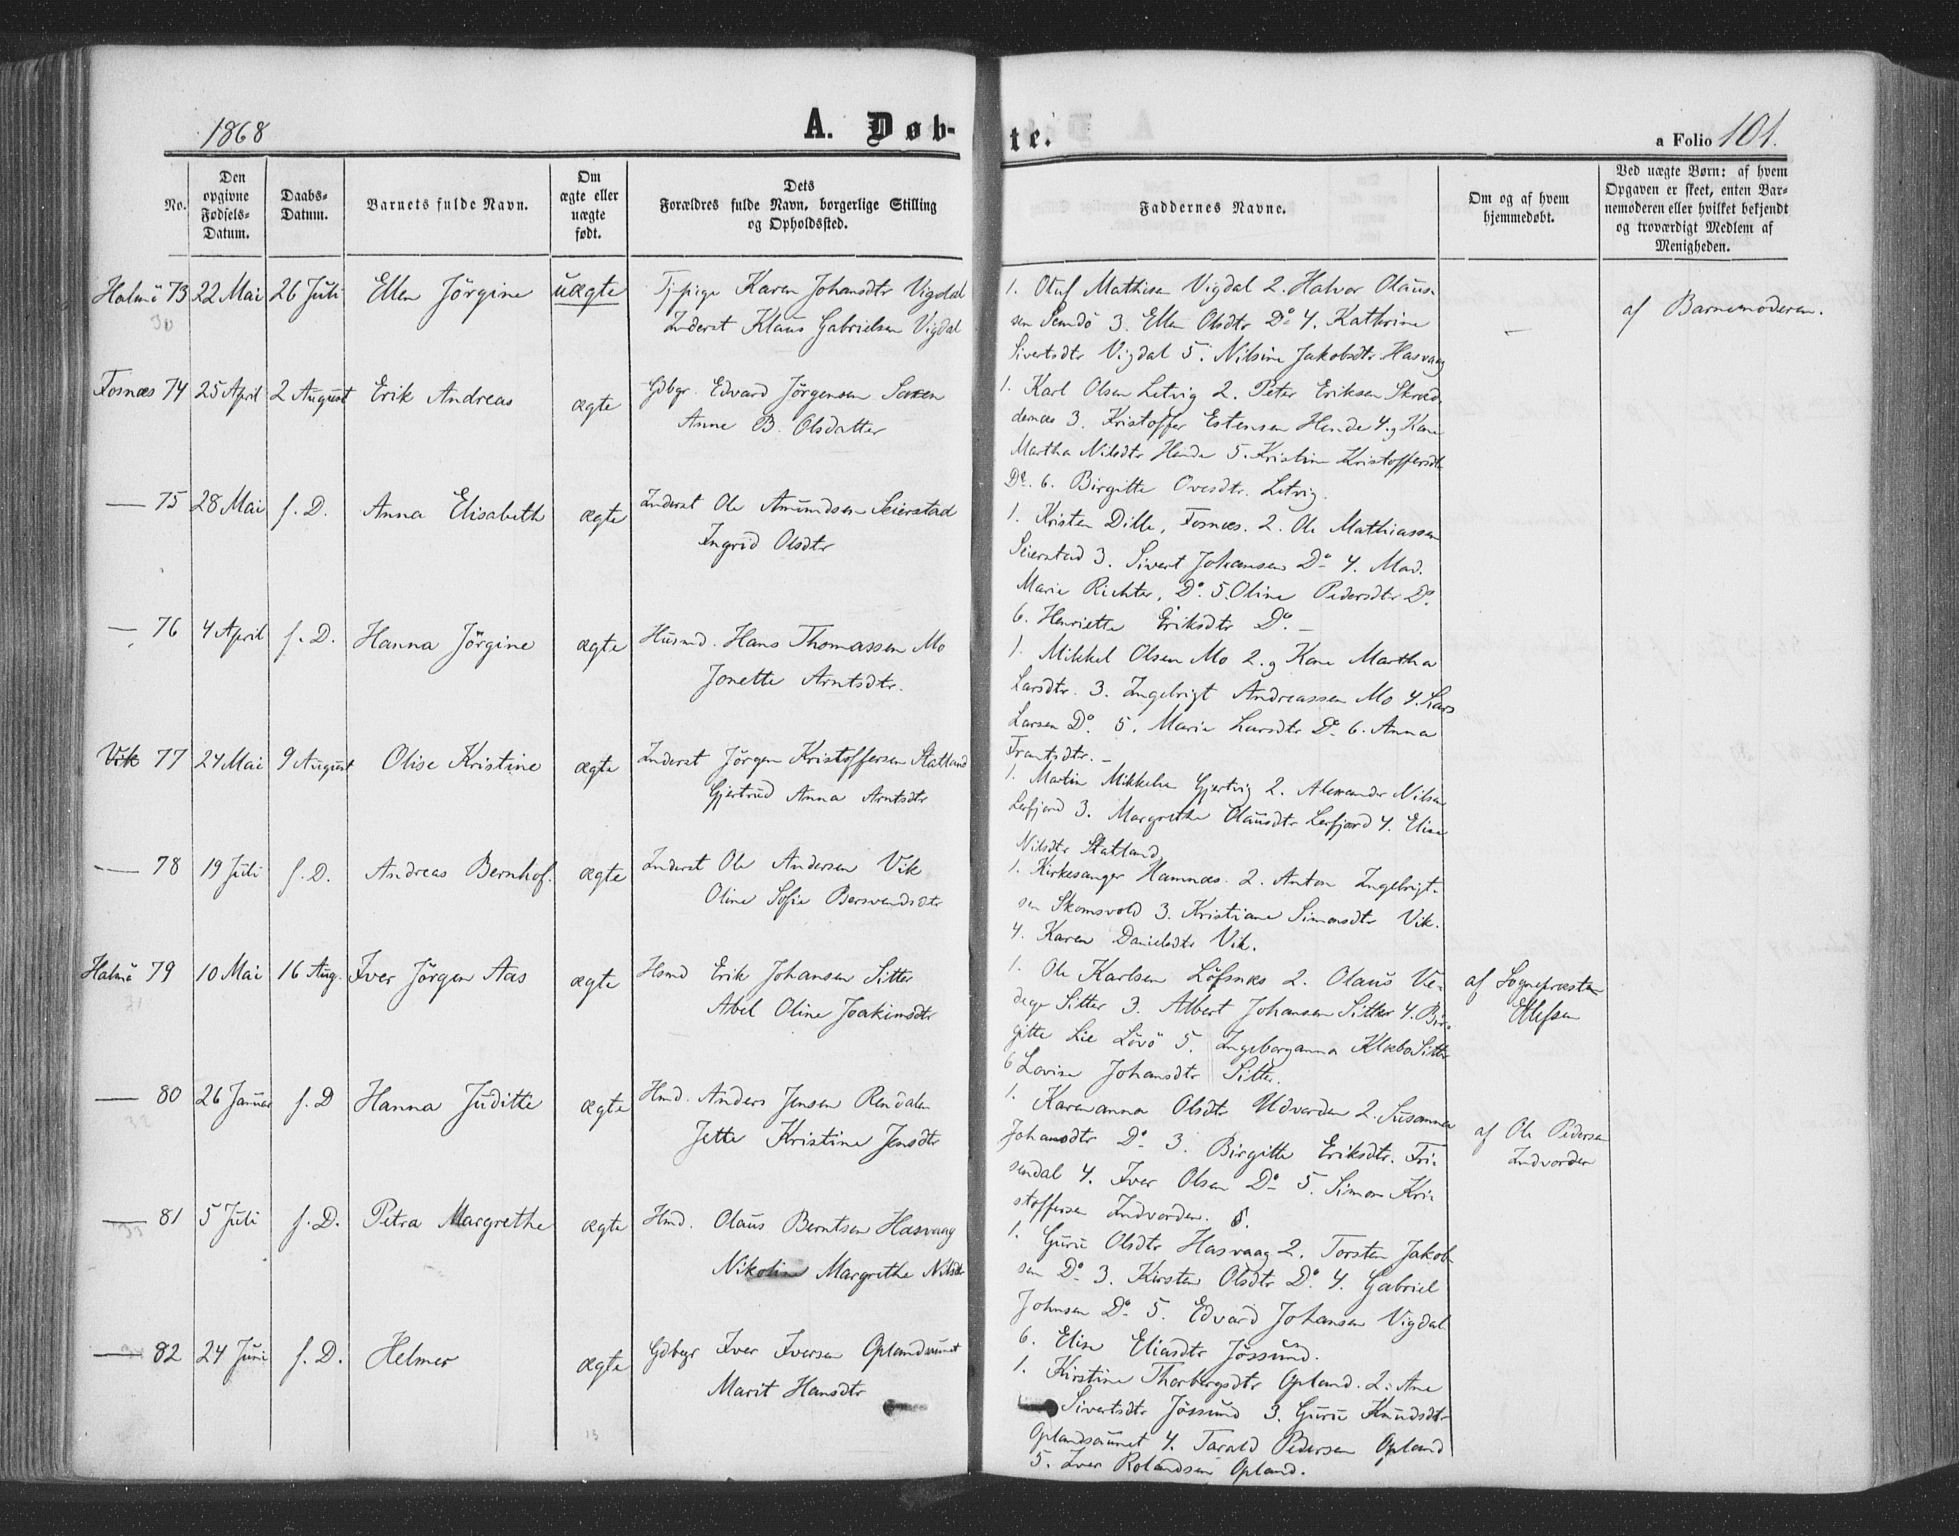 1868
A. Døb-
No.
Den opgivne Fødsels-Datum.
Daabs-Datum.
Barnets fulde Navn.
Om ægte eller uægte født.
Dets
Forældres fulde Navn, borgerlige Stilling
og Opholdssted.
Halmö 73 22 Mai 26 Juli Ellen Jörgine uægte Tj-pige Karen Johansdtr Vigdal
Inderst Klaus Gabrielsen Vigdal
30
Fosnæs 74 25 April 2 August Erik Andreas ægte Gdbgr. Edvard Jörgensen Saxen
Anne B. Olsdatter
— 75 28 Mai f. D. Anna Elisabeth ægte Inderst Ole Amundsen Seierstad
Ingrid Olsdtr
— 76 4 April f. D. Hanna Jörgine ægte Husmd. Hans Thomassen Mo
Jonette Arntsdtr.
Vik 77 24 Mai 9 August Olise Kristine ægte Inderst Jörgen Kristoffersen Statland
Gjertrud Anna Arntsdtr
— 78 19 Juli f. D. Andreas Bernhof. ægte Inderst Ole Andersen Vik
Oline Sofie Bersvendsdtr
Halmö 79 10 Mai 16 Aug. Iver Jörgen Aas ægte Hsmd Erik Johansen Sitter
Abel Oline Joakimsdtr
31
— 80 26 Januar f. D Hanna Juditte ægte Hmd. Anders Jensen Rendalen
Jette Kristine Jensdtr
32
— 81 5 Juli f. D. Petra Margrethe ægte Hmd. Olaus Berntsen Hasvaag
Nikolin Margrethe Nilsdtr
33
— 82 24 Juni f. D. Helmer ægte Gdbgr Iver Iversen Oplandaunet
Marit Hansdtr
13
te.
a Folio 101.
Faddernes Navne.
Om og af hvem
hjemmedøbt.
Ved uægte Børn: af hvem
Opgaven er skeet, enten Bar-
nemoderen eller hvilket bekjendt
og troværdigt Medlem af
Menigheden.
1. Oluf Mathisen Vigdal 2. Halvor Olaus-
sen Semdö 3. Ellen Olsdtr Do 4. Kathrine
Sivertsdtr Vigdal 5. Nilsine Jakobsdtr Hasvaag
—
af Barnemoderen.
1. Karl Olsen Letvig 2. Peter Eriksen Skræd-
dernæs 3. Kristoffer Estensen Hende 4. og Kone
Martha Nilsdtr Hende 5. Kristine Kristoffersdtr
Do. 6. Birgitte Ovesdtr. Letvig.
1. Kristen Dille, Fosnæs. 2. Ole Mathiassen
Seierstad 3. Sivert Johansen Do 4. Mad.
Marie Richter, Do. 5. Oline Pedersdtr Do.
6. Henriette Eriksdtr Do. —
1. Mikkel Olsen Mo 2. og Kone Martha
Larsdtr. 3. Ingebrigt Andreassen Mo 4. Lars
Larsen Do. 5. Marie Larsdtr Do 6. Anna
Frantsdtr. —
1. Martin Mikkelsen Gjertvig 2. Alexander Nilsen
Lerfjord 3. Margrethe Olausdtr Lerfjord 4. Elise
Nilsdtr Statland
1. Kirkesanger Hamnæs. 2. Anton Ingebrigt-
sen Skomsvold 3. Kristiane Simonsdtr Vik.
4. Karen Danielsdtr Vik.
1. Ole Karlsen Löfsnæs 2. Olaus Ve-
dege Sitter 3. Albert Johansen Sitter 4. Bir-
gitte Lie Lövö 5. Ingeborganna Klæbo Sitter
6 Lovise Johansdtr Sitter.
af Sognepresten
Ellefsen
1. Karenanna Olsdtr Udvorden 2. Susanna
Johansdtr Do 3. Birgitte Eriksdtr. Fri-
sendal 4. Iver Olsen Do 5. Simon Kri-
stoffersen Indvorden. 6.
af Ole Pedersen
Indvorden
1. Guru Olsdtr Hasvaag 2. Torsten Jakob-
sen Do 3. Kirsten Olsdtr Do. 4. Gabriel
Johnsen Do 5. Edvard Johansen Vigdal
6. Elise Eliasdtr Jössund.
1. Kirstine Thorbergsdtr Opland. 2. Ane
Sivertsdtr Jössund 3. Guru Knudsdtr
Oplandsaunet 4. Tarald Pedersen Opland
5. Iver Rolandsen Opland.